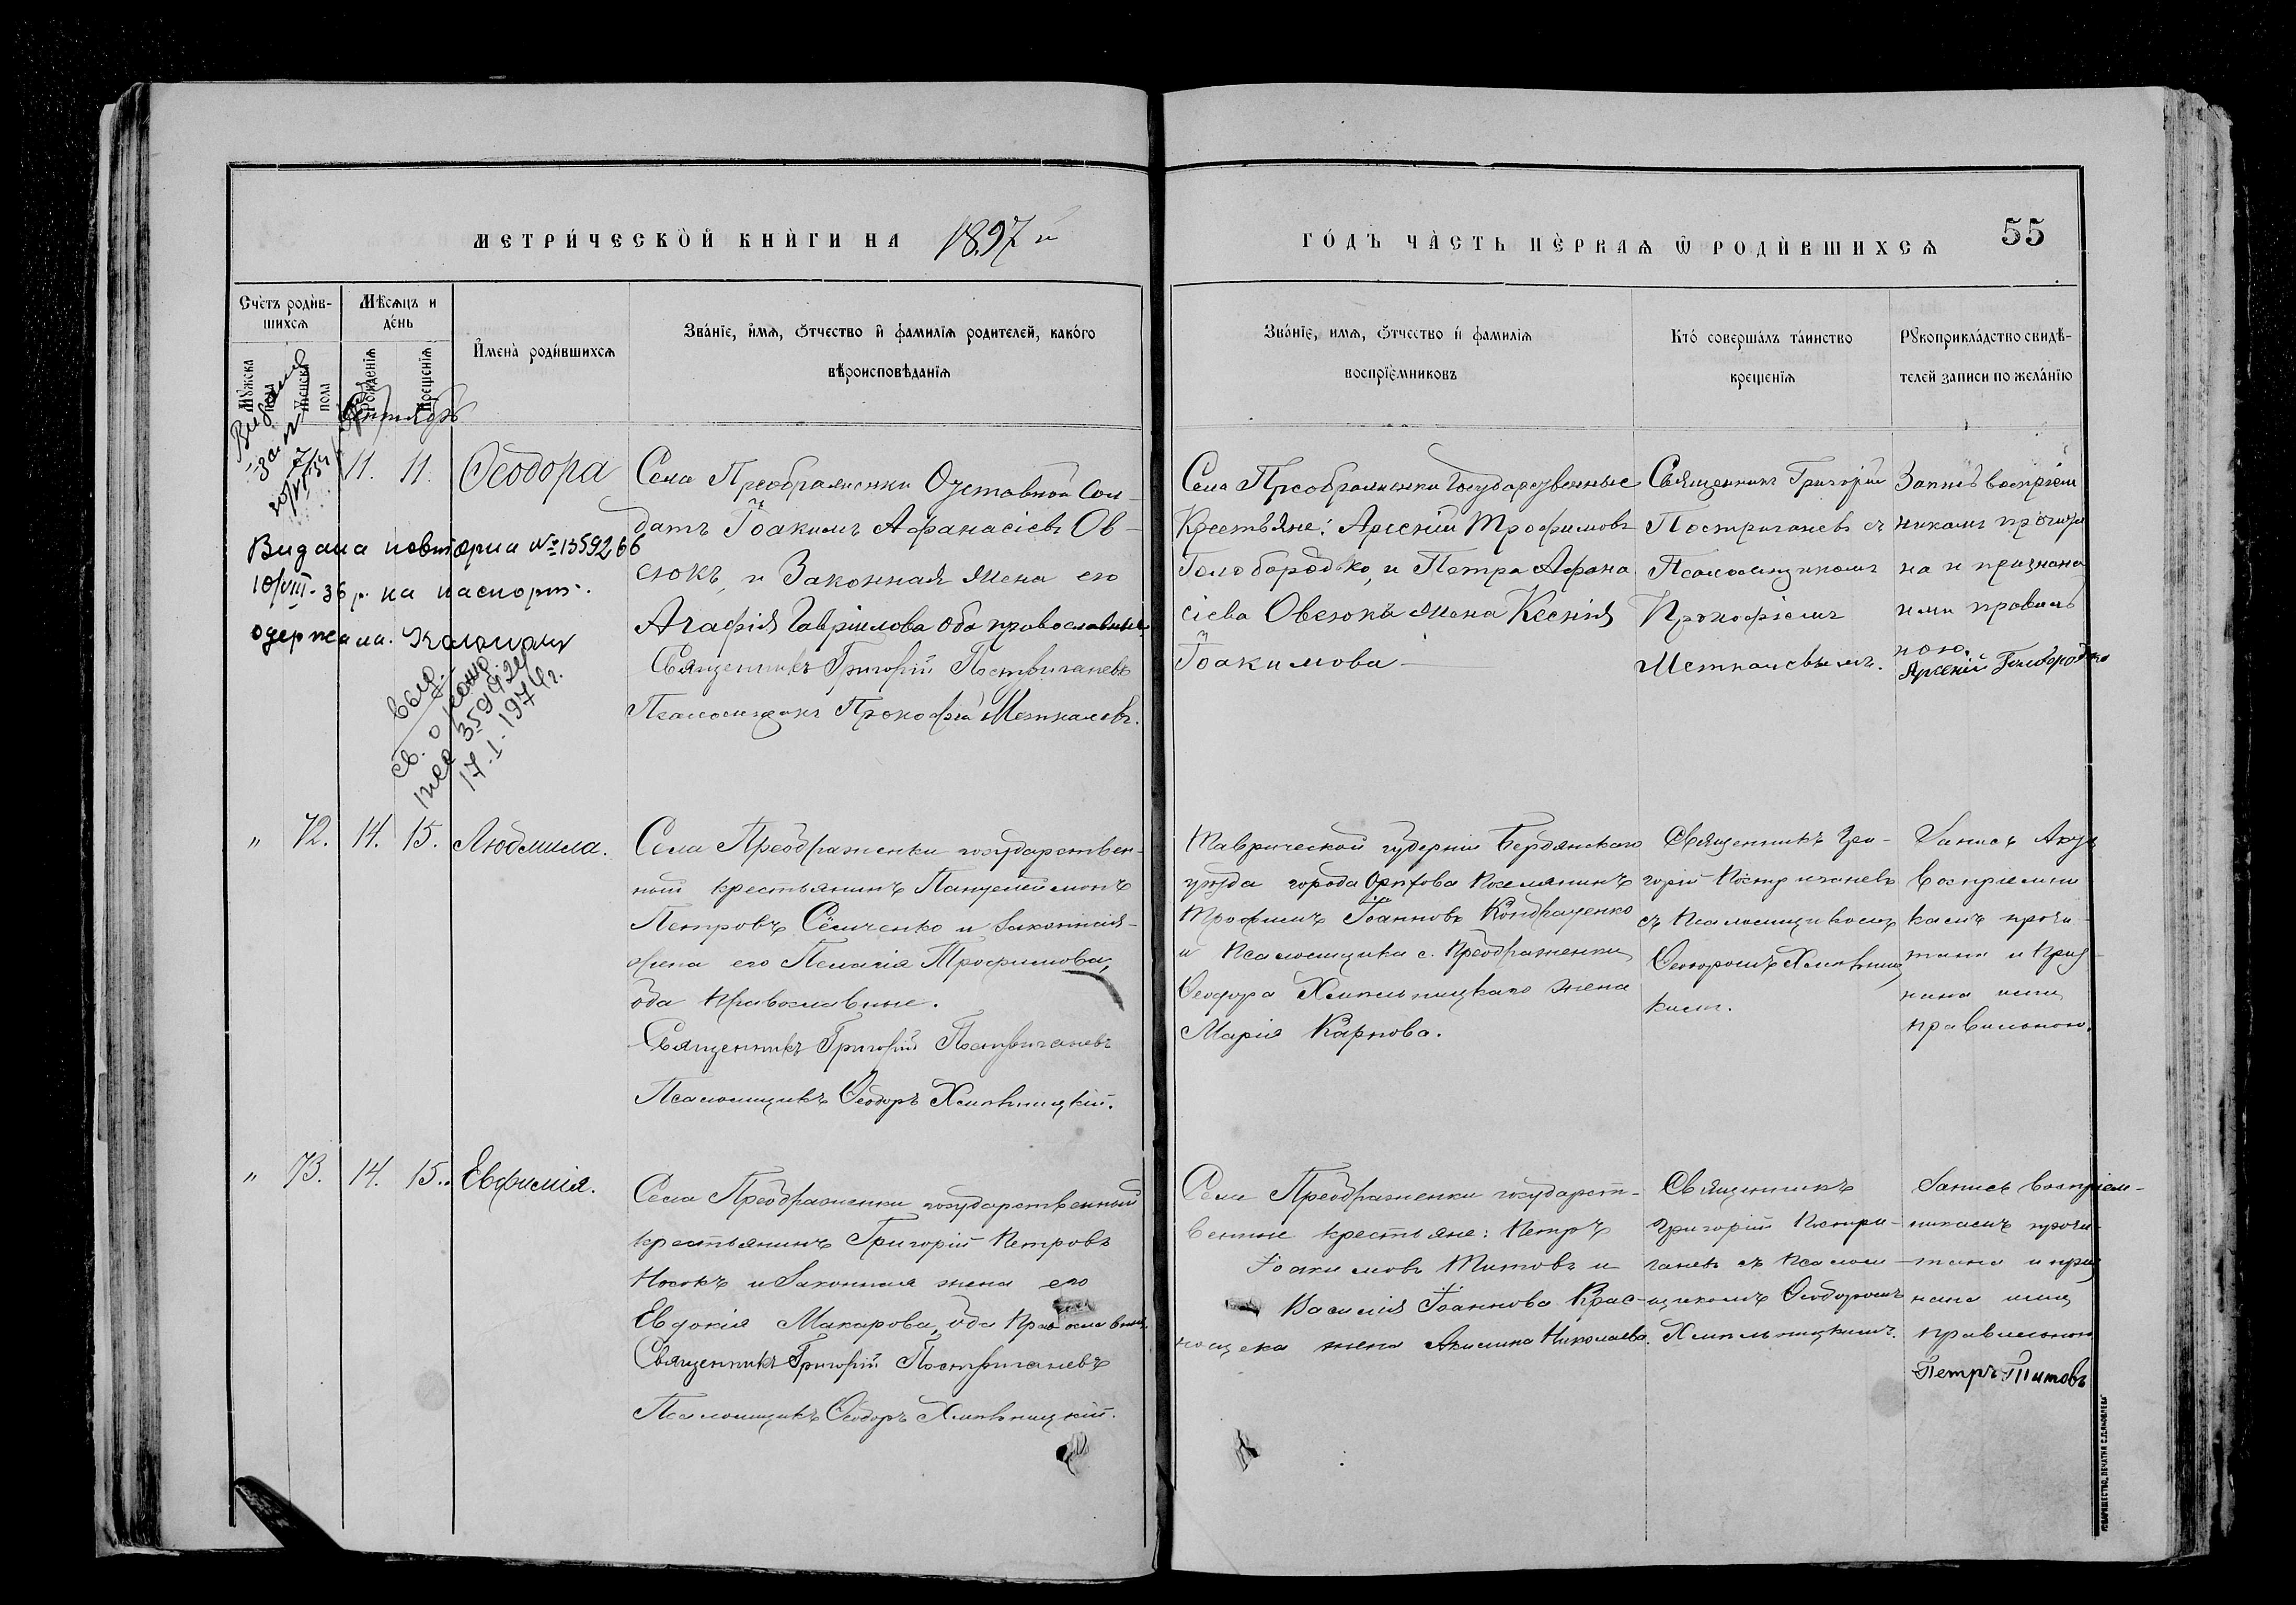 МЕТРИ́ЧЕСКОЙ КНИ́ГИ НА 1897 й
ГО́ДЪ ЧА́СТЬ ПЕ́РВАѦ Ѿ РОДИ́ВШИХСѦ
55
Счетъ роди́в-
шихсѧ
Мꙋжска
пола
Женска
пола
Мѣсѧцъ и
де́нь
Рожденїѧ
Крещенїѧ
И҆мена̀ роди́вшихсѧ
Зва́нїе, и҆мѧ, ѻтчество и҆ фамилїѧ родителей, како́го
вѣроисповѣданїѧ
Зва́нїе, имѧ, ѻтчество и҆ фамилїѧ
воспрїе́мниковъ
Кто́ соверша́лъ та́инство
крещенїѧ
Рꙋкоприкла́дство свидѣ-
телей записи по жела́нїю
Сентябрь
11. 11. Ѳеодора
Села Преображенки Отставной Сол-
датъ Іоакимъ Аѳанасіевъ Ов-
сюкъ, и Законная жена его
Агафія Гавріилова оба православные
Священникъ Григорій Постригачевъ
Псаломщикъ Прокофій Меткалевъ.
Села Преображенки Государственные
Крестьяне: Арсеній Трофимовъ
Голобородько, и Петра Афана
сіева Овсюкъ жена Ксенія
Іоакимова —
Священникъ Григорій
Постригачевъ съ
Псаломщикомъ
Прокофіемъ
Меткалевымъ.
Запись воспріем
никамъ прочита
на и признана
ими правиль
ною.
Арсеній Голобородько
Видана повторна № 1359266
10/VIII-36 р. на паспорт.
одержала.
выд.
св. о рожд.
17.I.1974г.
" 72. 14. 15. Людмила.
Села Преображенки государствен-
ный крестьянинъ Пантелеймонъ
Петровъ Семченко и законная
жена его Пелагія Трофимова,
оба православные.
Священникъ Григорій Постригачевъ
Псаломщикъ Ѳеодоръ Хмельницкій.
Таврической губерніи Бердянского
уѣзда города Орѣхова поселянинъ
Трофимъ Іоанновъ Кондраценко
и Псаломщика с. Преображенки
Ѳеодора Хмельницкаго жена
Марія Карпова.
Священникъ Гри-
горій Постригачевъ
съ Псаломщикомъ
Ѳеодоромъ Хмельниц
кимъ.
Запись
воспріемни
камъ прочи-
тана и приз-
нана ими
правильною.
" 73. 14. 15. Евфимія.
Села Преображенки государственный
крестьянинъ Григорій Петровъ
Носокъ и законная жена его
Евдокія Макарова, оба православные.
Священникъ Григорій Постригачевъ
Псаломщикъ Ѳеодоръ Хмельницкій.
Села Преображенки государст-
венные крестьяне: Петръ
Іоакимовъ Титовъ и
Василія Іоаннова Крас-
нощека жена Акилина Николаева.
Священникъ
Григорій Постри-
гачевъ съ Псалом-
щикомъ Ѳеодоромъ
Хмельницкимъ.
Запись воспріем-
никамъ прочи-
тана и приз
нана ими
правильною
Петръ Титовъ
ТОВАРИЩЕСТВО „ПЕЧАТНЯ С.П.ЯКОВЛЕВА"